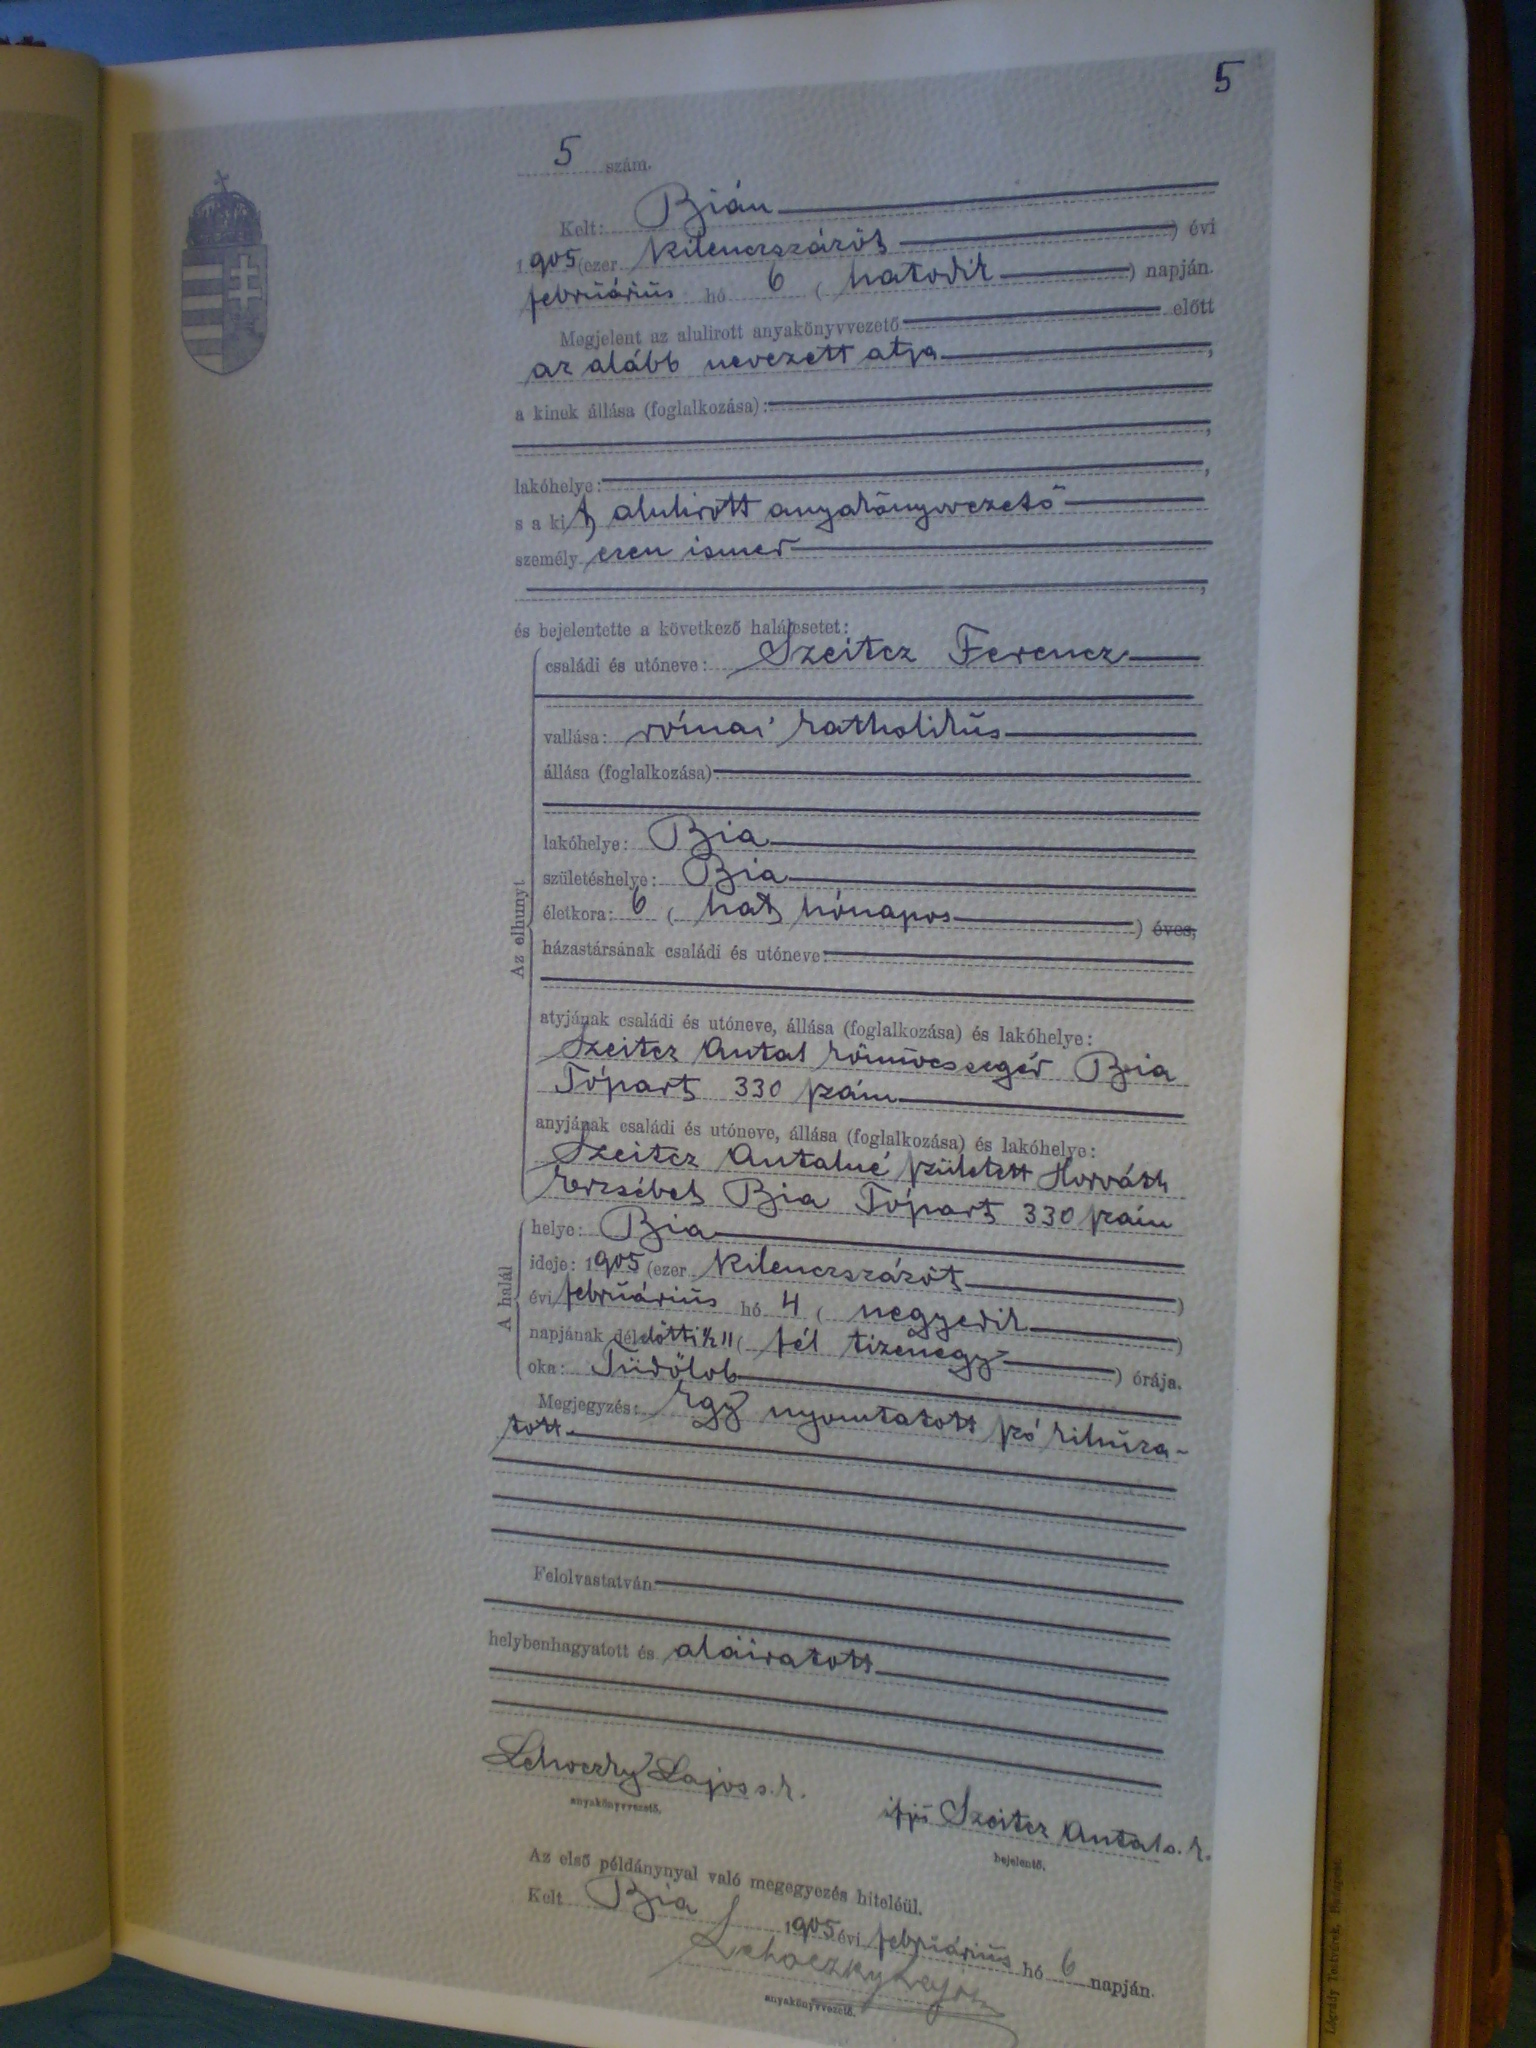 5
5 szám.
Kelt: Bián
1905 (ezer kilenczszázöt ) évi
február­ius hó 6 ( hatodik ) napján.
Megjelent az alulirott anyakönyvvezető előtt
az alább nevezett atja ,
a kinek állása (foglalkozása):
,
lakóhelye: ,
s a kit alulirott anyakönyvvezető
személy esen ismer
,
és bejelentette a következő halálesetet:
családi és utóneve: Szeitcz Ferencz
vallása: római katholikus
állása (foglalkozása)
lakóhelye: Bia
születéshelye: Bia
életkora: 6 ( hat hónapos ) éves,
Az elhunyt
házastársának családi és utóneve:
atyjának családi és utóneve, állása (foglalkozása) és lakóhelye:
Szeitcz Antal kőmüvessegéd Bia
Tópart 330 szám
anyjának családi és utóneve, állása (foglalkozása) és lakóhelye:
Szeitcz Antalné született Horváth
Erzsébet Bia Tópart 330 szám
A halál
helye: Bia
ideje: 1905 (ezer kilenczszázöt )
évi februárius hó 4 ( negyedik )
napjának délelőtti ½11 ( fél tizenegy ) órája.
oka: Tüdőlob
Megjegyzés: Egy nyomtatott szó kihúza-
tott.
Felolvastatván
helybenhagyatott és aláiratott
Lehoczky Lajos s. k.
anyakönyvvezető.
ifjú Szeitcz Antal s. k.
bejelentő.
Az első példánynyal való megegyezés hiteléül.
Kelt Bia 1905 évi februárius hó 6 napján.
Lehoczky Lajos
anyakönyvvezető.
Légrády Testvérek, Budapest.